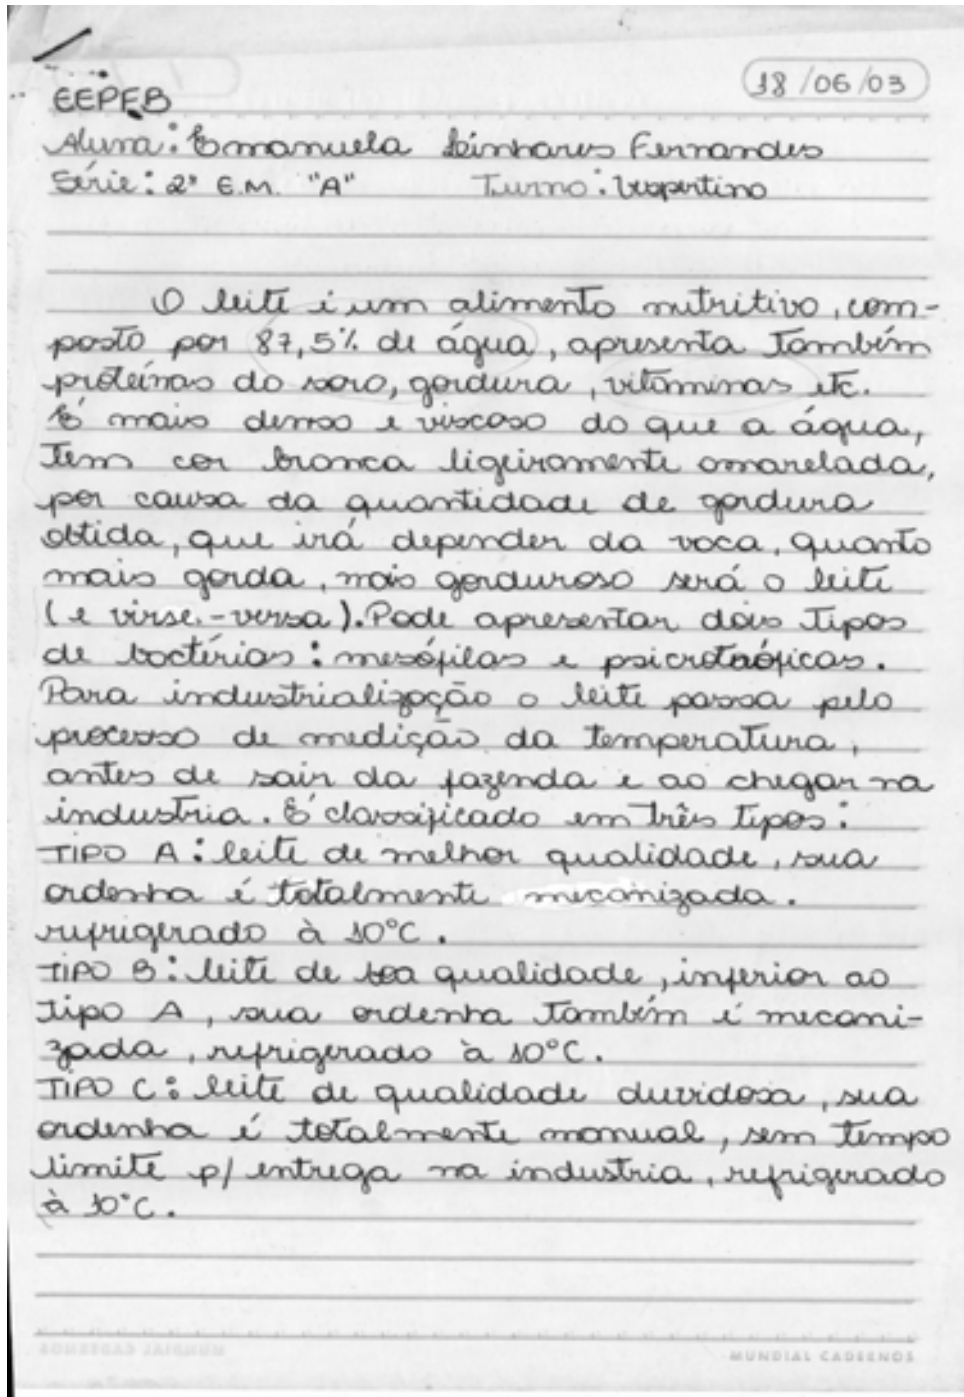 18/06/03
EEPEB
Aluna: Emanuela Linhares Fernandes
Série: 2ª E.M. "A" Turno: Vespertino
O leite é um alimento nutritivo, com-
posto por 87,5% de água, apresenta também
proteínas do soro, gordura, vitaminas etc.
É mais denso e viscoso do que a água,
tem cor branca ligeiramente amarelada,
por causa da quantidade de gordura
obtida, que irá depender da vaca, quanto
mais gorda, mais gorduroso será o leite
(e virse-versa). Pode apresentar dois tipos
de bactérias: mesófilas e psicrotróficas.
Para industrialização o leite passa pelo
processo de medição da temperatura,
antes de sair da fazenda e ao chegar na
industria. É classificado em três tipos:
TIPO A: leite de melhor qualidade, sua
ordenha é totalmente mecanizada.
refrigerado à 10°C.
TIPO B: leite de boa qualidade, inferior ao
tipo A, sua ordenha também é mecani-
zada, refrigerado à 10°C.
TIPO C: leite de qualidade duvidosa, sua
ordenha é totalmente manual, sem tempo
limite p/ entrega na industria, refrigerado
à 10°C.
MUNDIAL CADERNOS